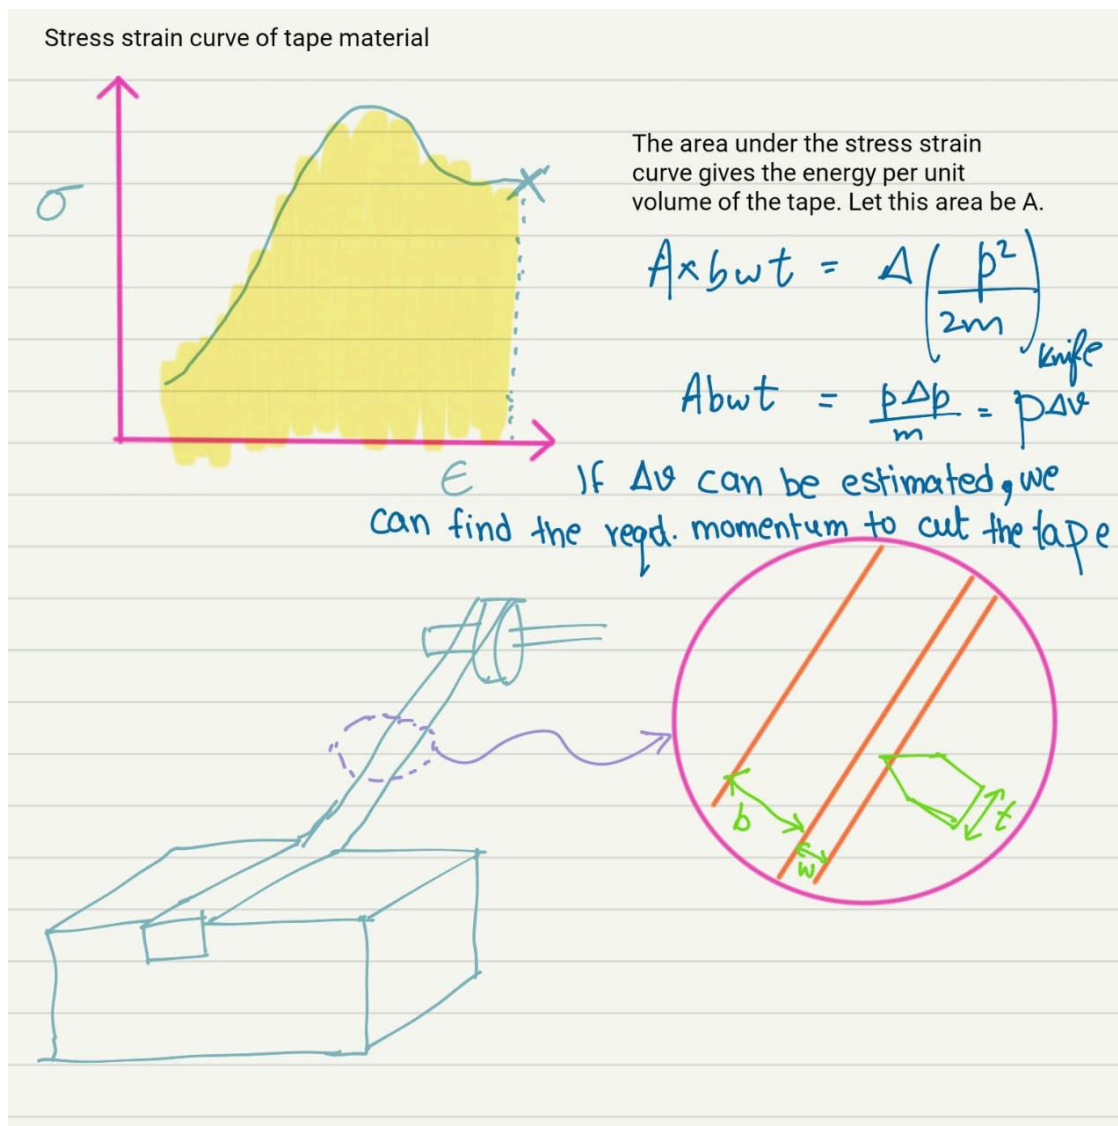 Stress strain curve of tape material
σ
ϵ
The area under the stress strain
curve gives the energy per unit
volume of the tape. Let this area be A.
A×bwt = Δ(p²/2m)knife
Abwt = pΔp/m = pΔv
If Δv can be estimated, we
can find the reqd. momentum to cut the tape
b
w
t